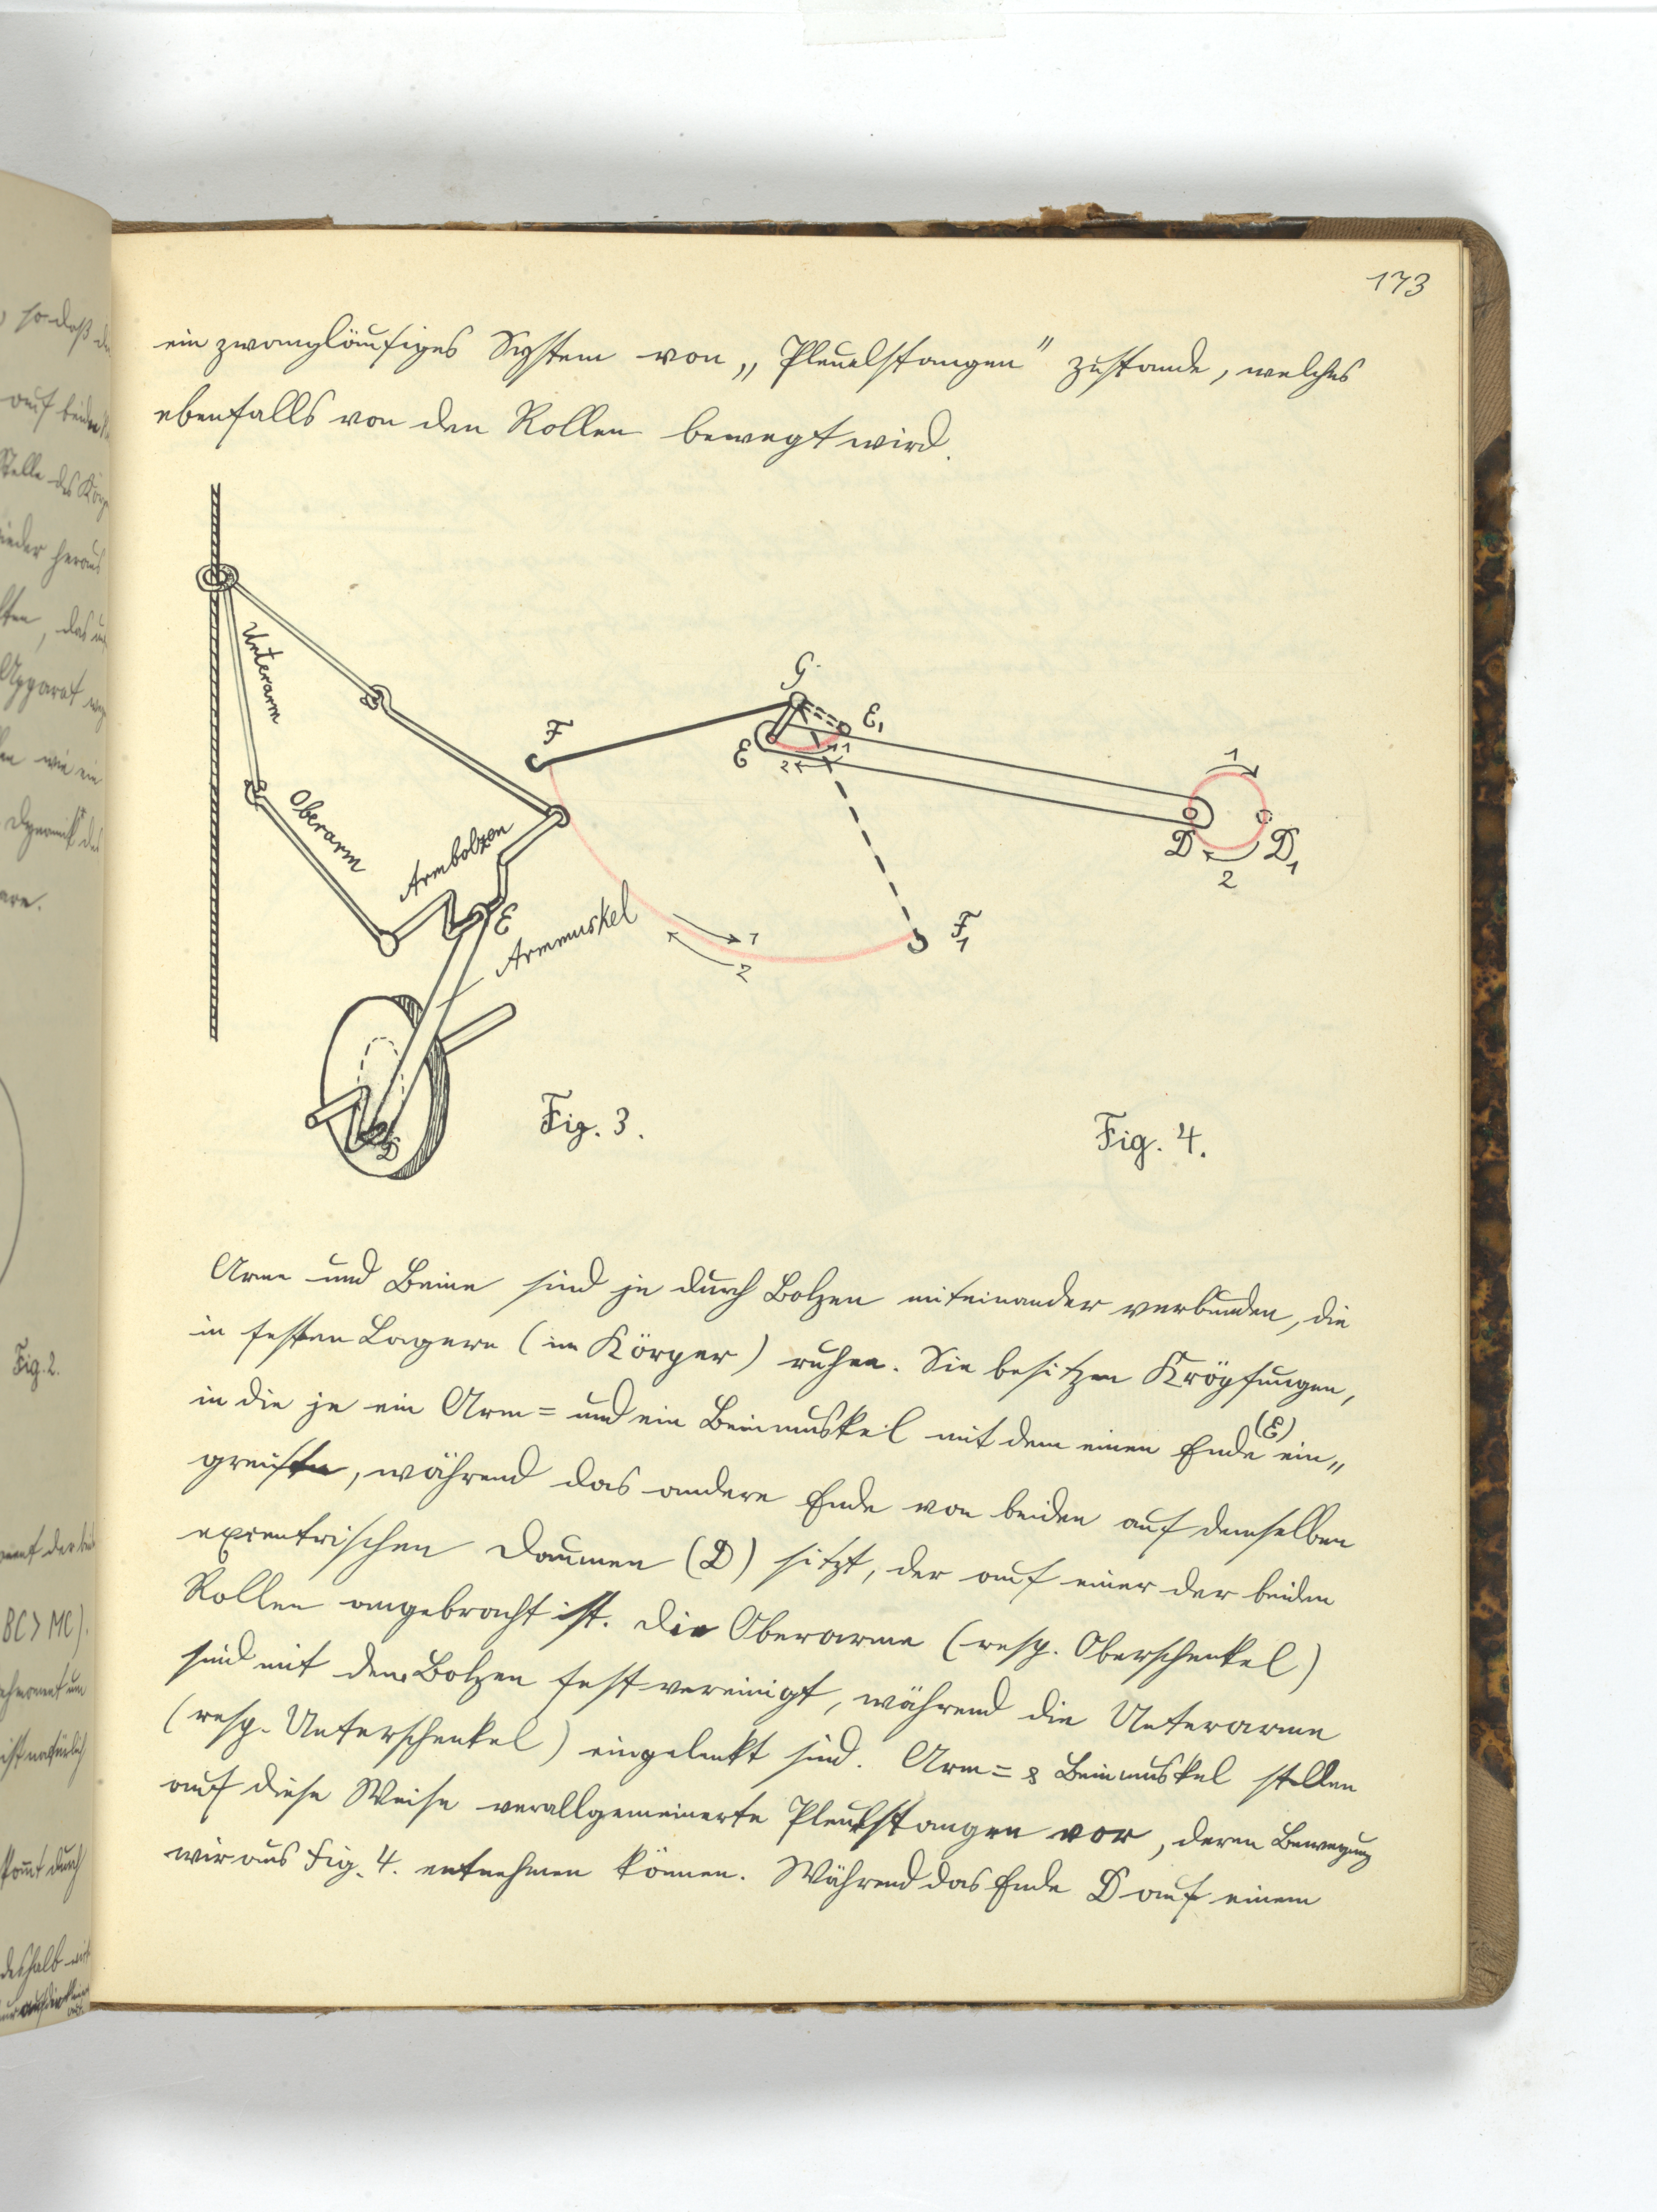 173
ein zwangläufiges System von „Pleuelstangen" zustande, welches
ebenfalls von den Rollen bewegt wird.
Unterarm
Oberarm
Armbolzen
E
Armmuskel
D
Fig. 3.
F
G
E
E₁
1
2
D
D₁
1
2
F₁
1
2
Fig. 4.
Arme und Beine sind je durch Bolzen miteinander verbunden, die
in festen Lagern (im Körper) ruhen. Sie besitzen Kröpfungen,
in die je ein Arm= und ein Beinmuskel mit dem einen Ende (E) ein„
greifen, während das andere Ende von beiden auf demselben
excentrischen Daumen (D) sitzt, der auf einer der beiden
Rollen angebracht ist. Die Oberarme (resp. Oberschenkel)
sind mit dem Bolzen fest vereinigt, während die Unterarme
(resp. Unterschenkel) eingelenkt sind. Arm= & Beinmuskel stellen
auf diese Weise verallgemeinerte Pleuelstangen vor, deren Bewegung
wir aus Fig. 4. entnehmen können. Während das Ende D auf einem
so daß
auf beiden
Stelle des
wieder heraus
Apparat
wie ein
Dynamik des
Fig. 2.
BC > MC).
ist natürlich
durch
deshalb